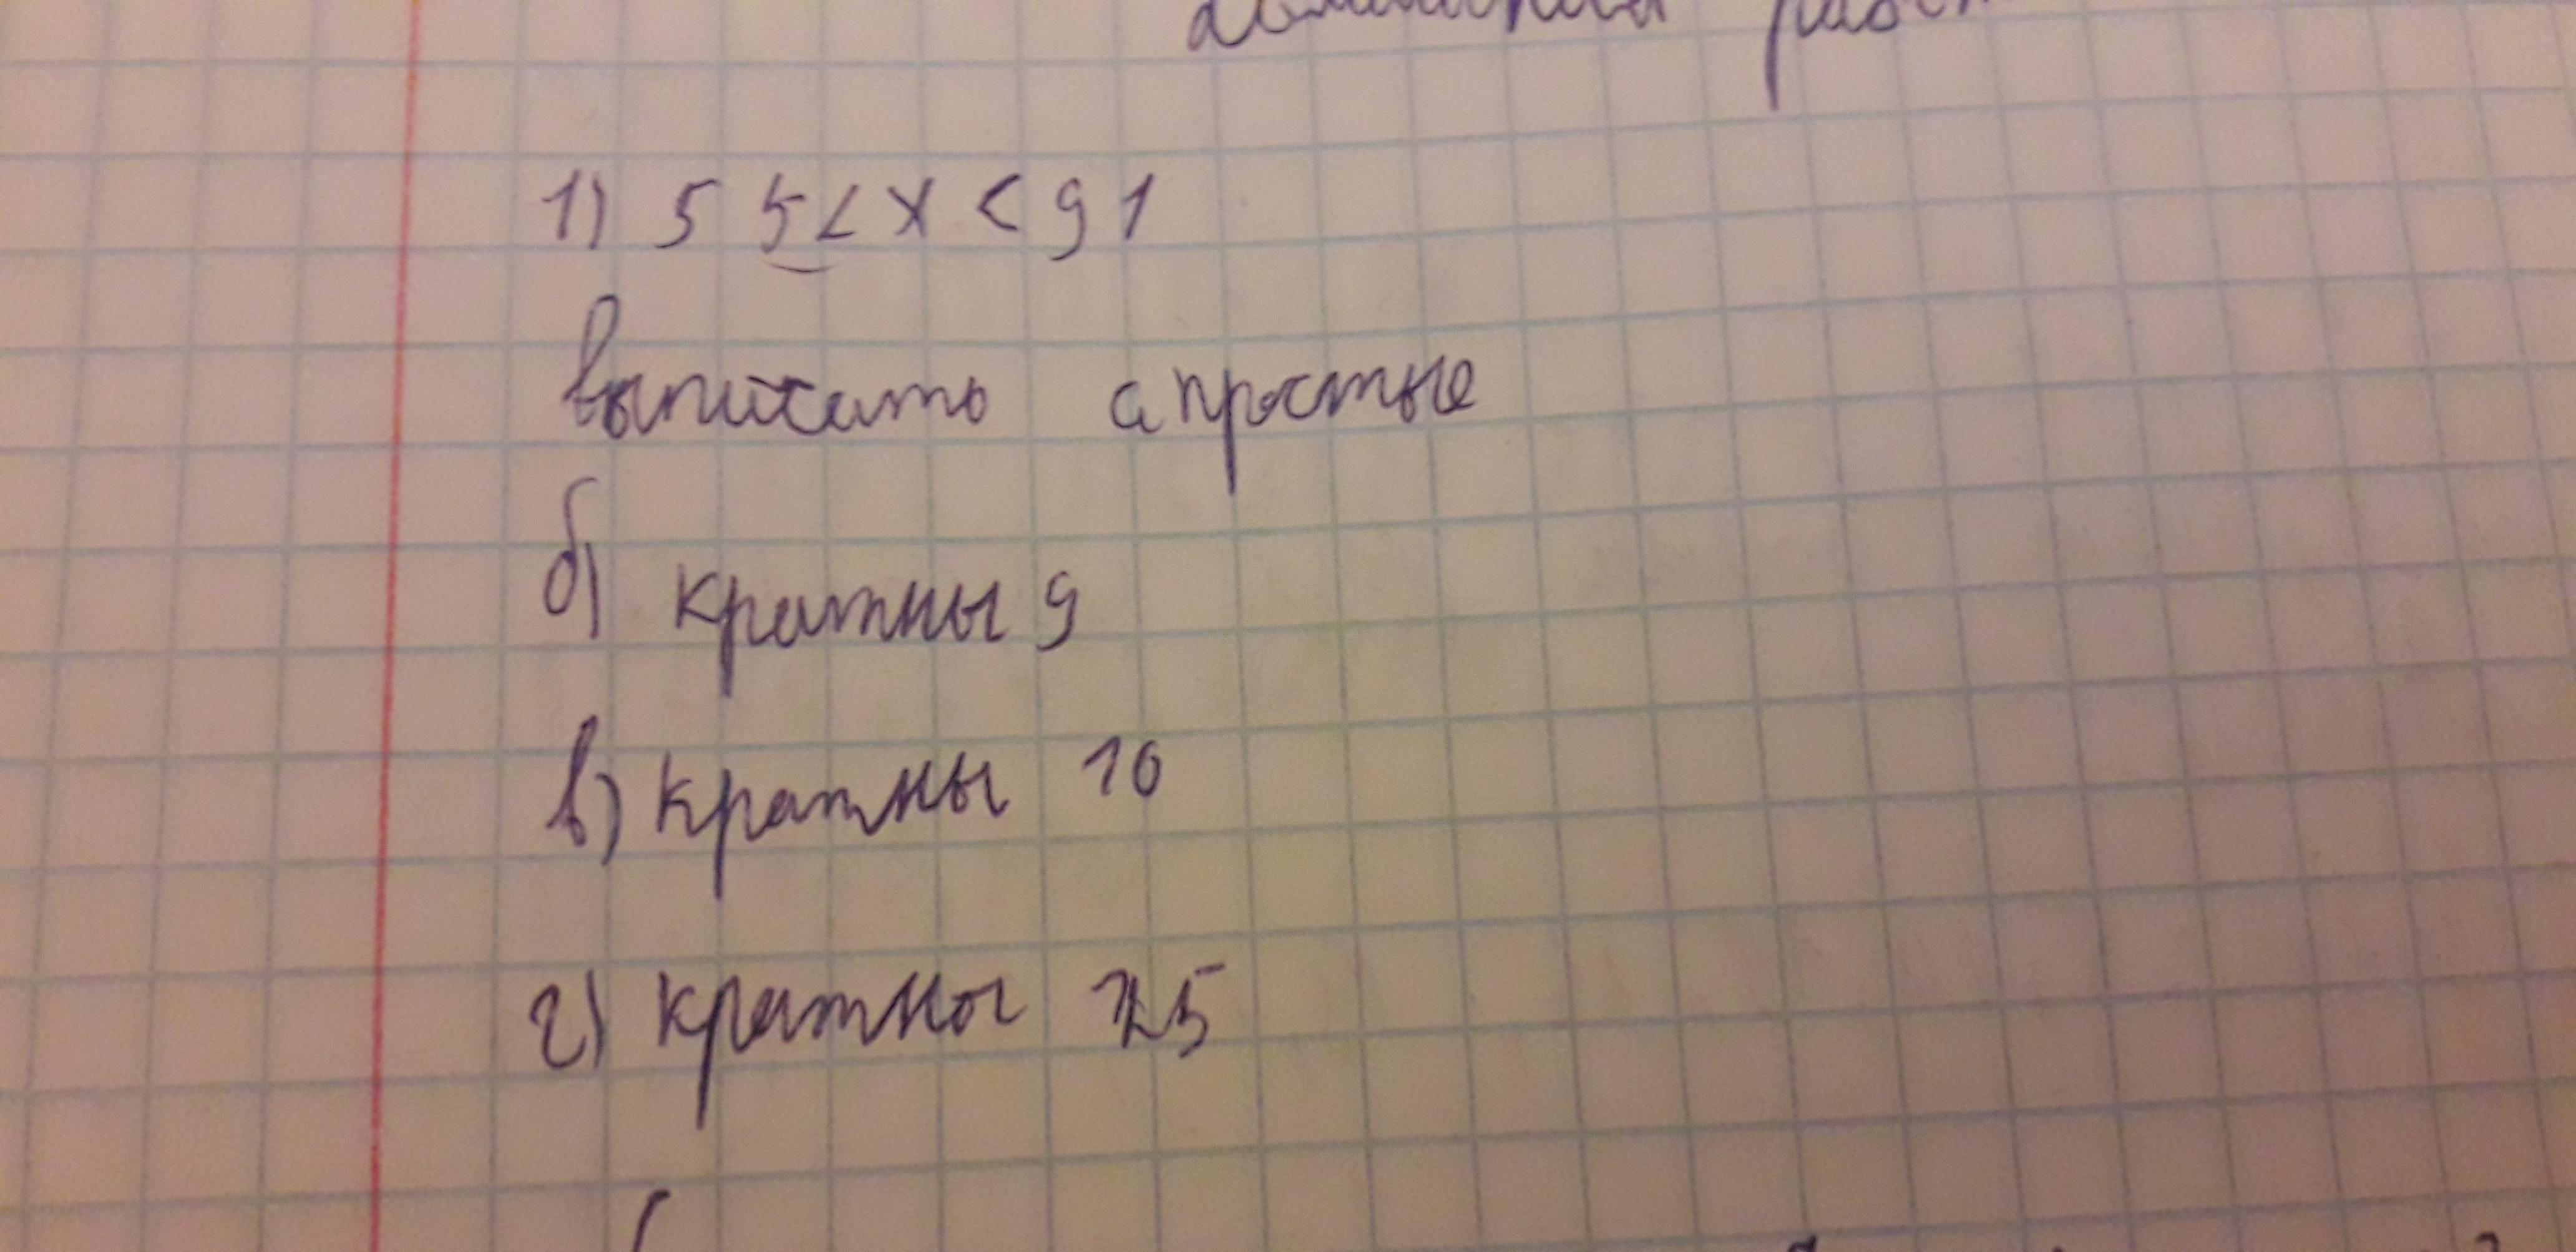 1) 55 < x < 91
Выписать а простые
б) кратны 9
в) кратны 10
г) кратны